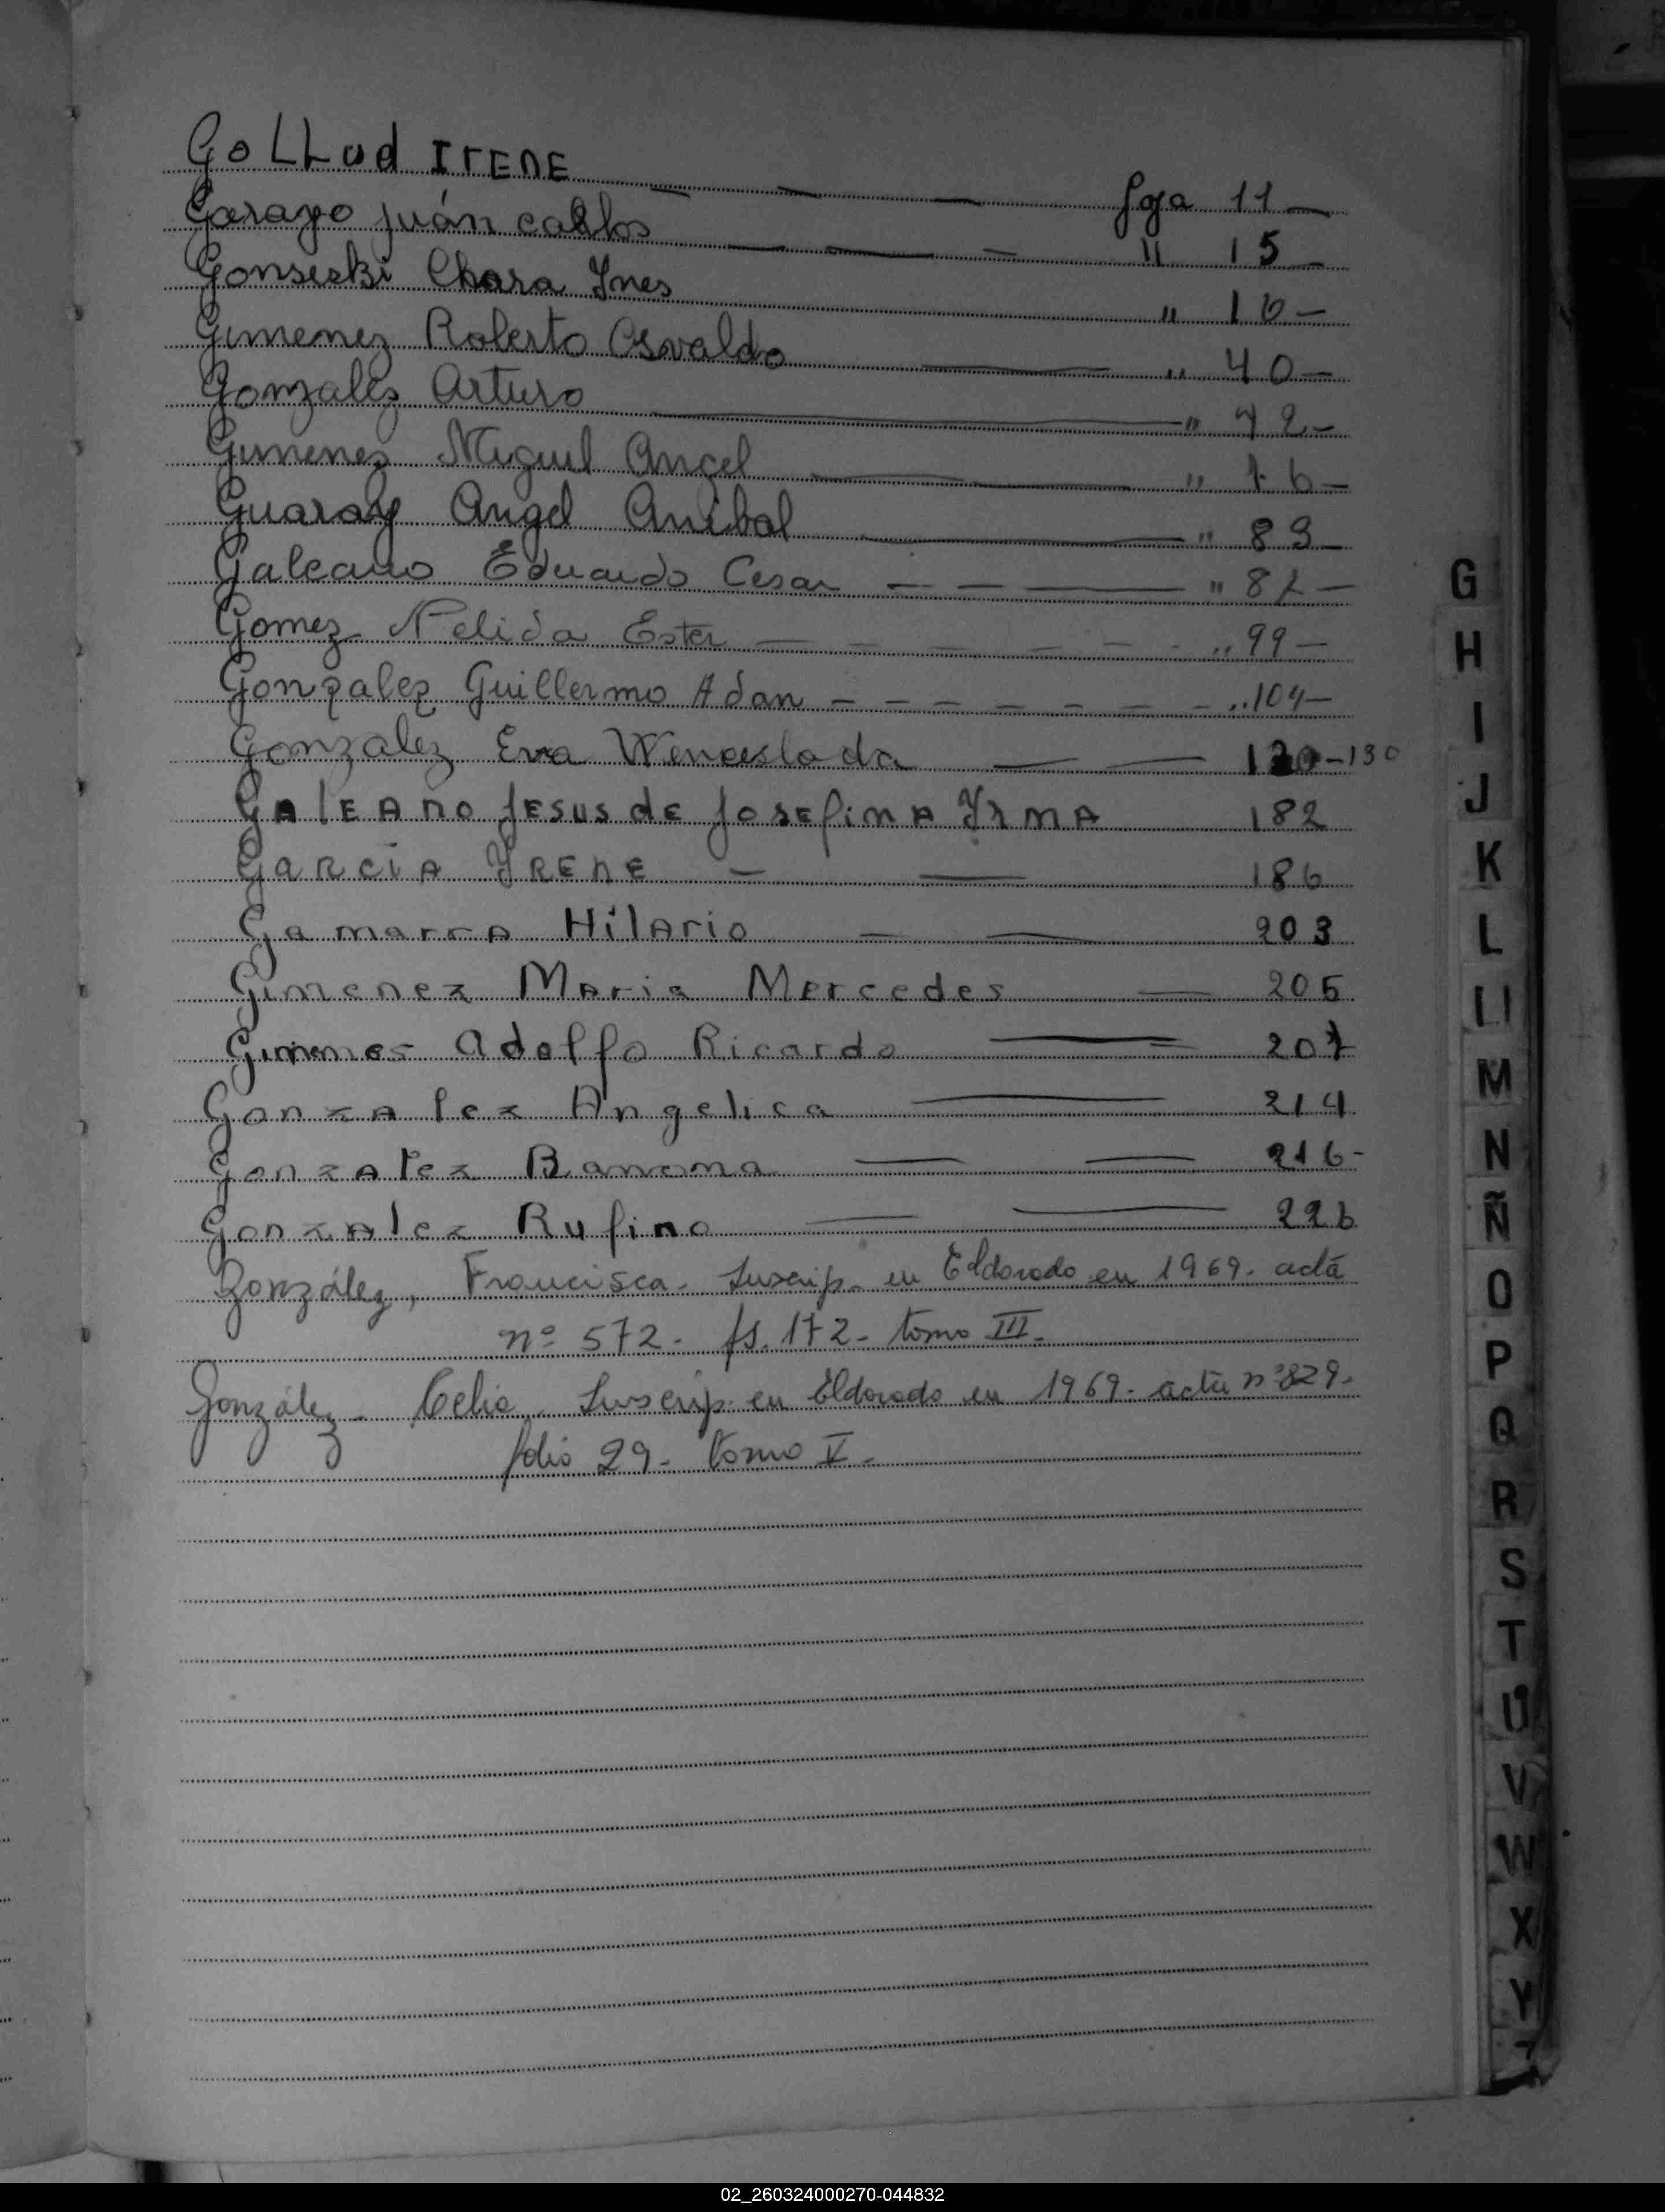 GoLLud IrENE — — — foja 11 —
Garayo juán carlos — — — " 15 —
Gonseski Chara Ynes " 16 —
Gimenez Roberto Osvaldo — " 40 —
Gonzalez Arturo — " 72 —
Gimenez Miguel Angel — " 76 —
Guaray Angel Anibal — " 83 —
Galeano Eduardo Cesar — — — " 87 —
Gomez Nelida Ester — — — — — - ,, 99 —
Gonzalez Guillermo Adan — — — — — — - ,, 104 —
Gonzalez Eva Wenceslada — — 130 - 130
GAlEANO JESUS dE JosEfinA YrmA 182
GARCIA YRENE — — 186
Gamarra Hilario — — 203
Gimenez Maria Mercedes — 205
Gimenes Adolfo Ricardo — 207
Gonzalez Angelica — 214
Gonzalez Ramona — — 216 -
Gonzalez Rufino — — 226
González, Francisca. Inscrip. en Eldorado en 1969. acta
nº 572 - fs. 172 - tomo III.
González - Celia. Inscrip. en Eldorado en 1969. acta nº 829.
folio 29. tomo V.
G
H
I
J
K
L
Ll
M
N
Ñ
O
P
Q
R
S
T
U
V
W
X
Y
02_260324000270-044832